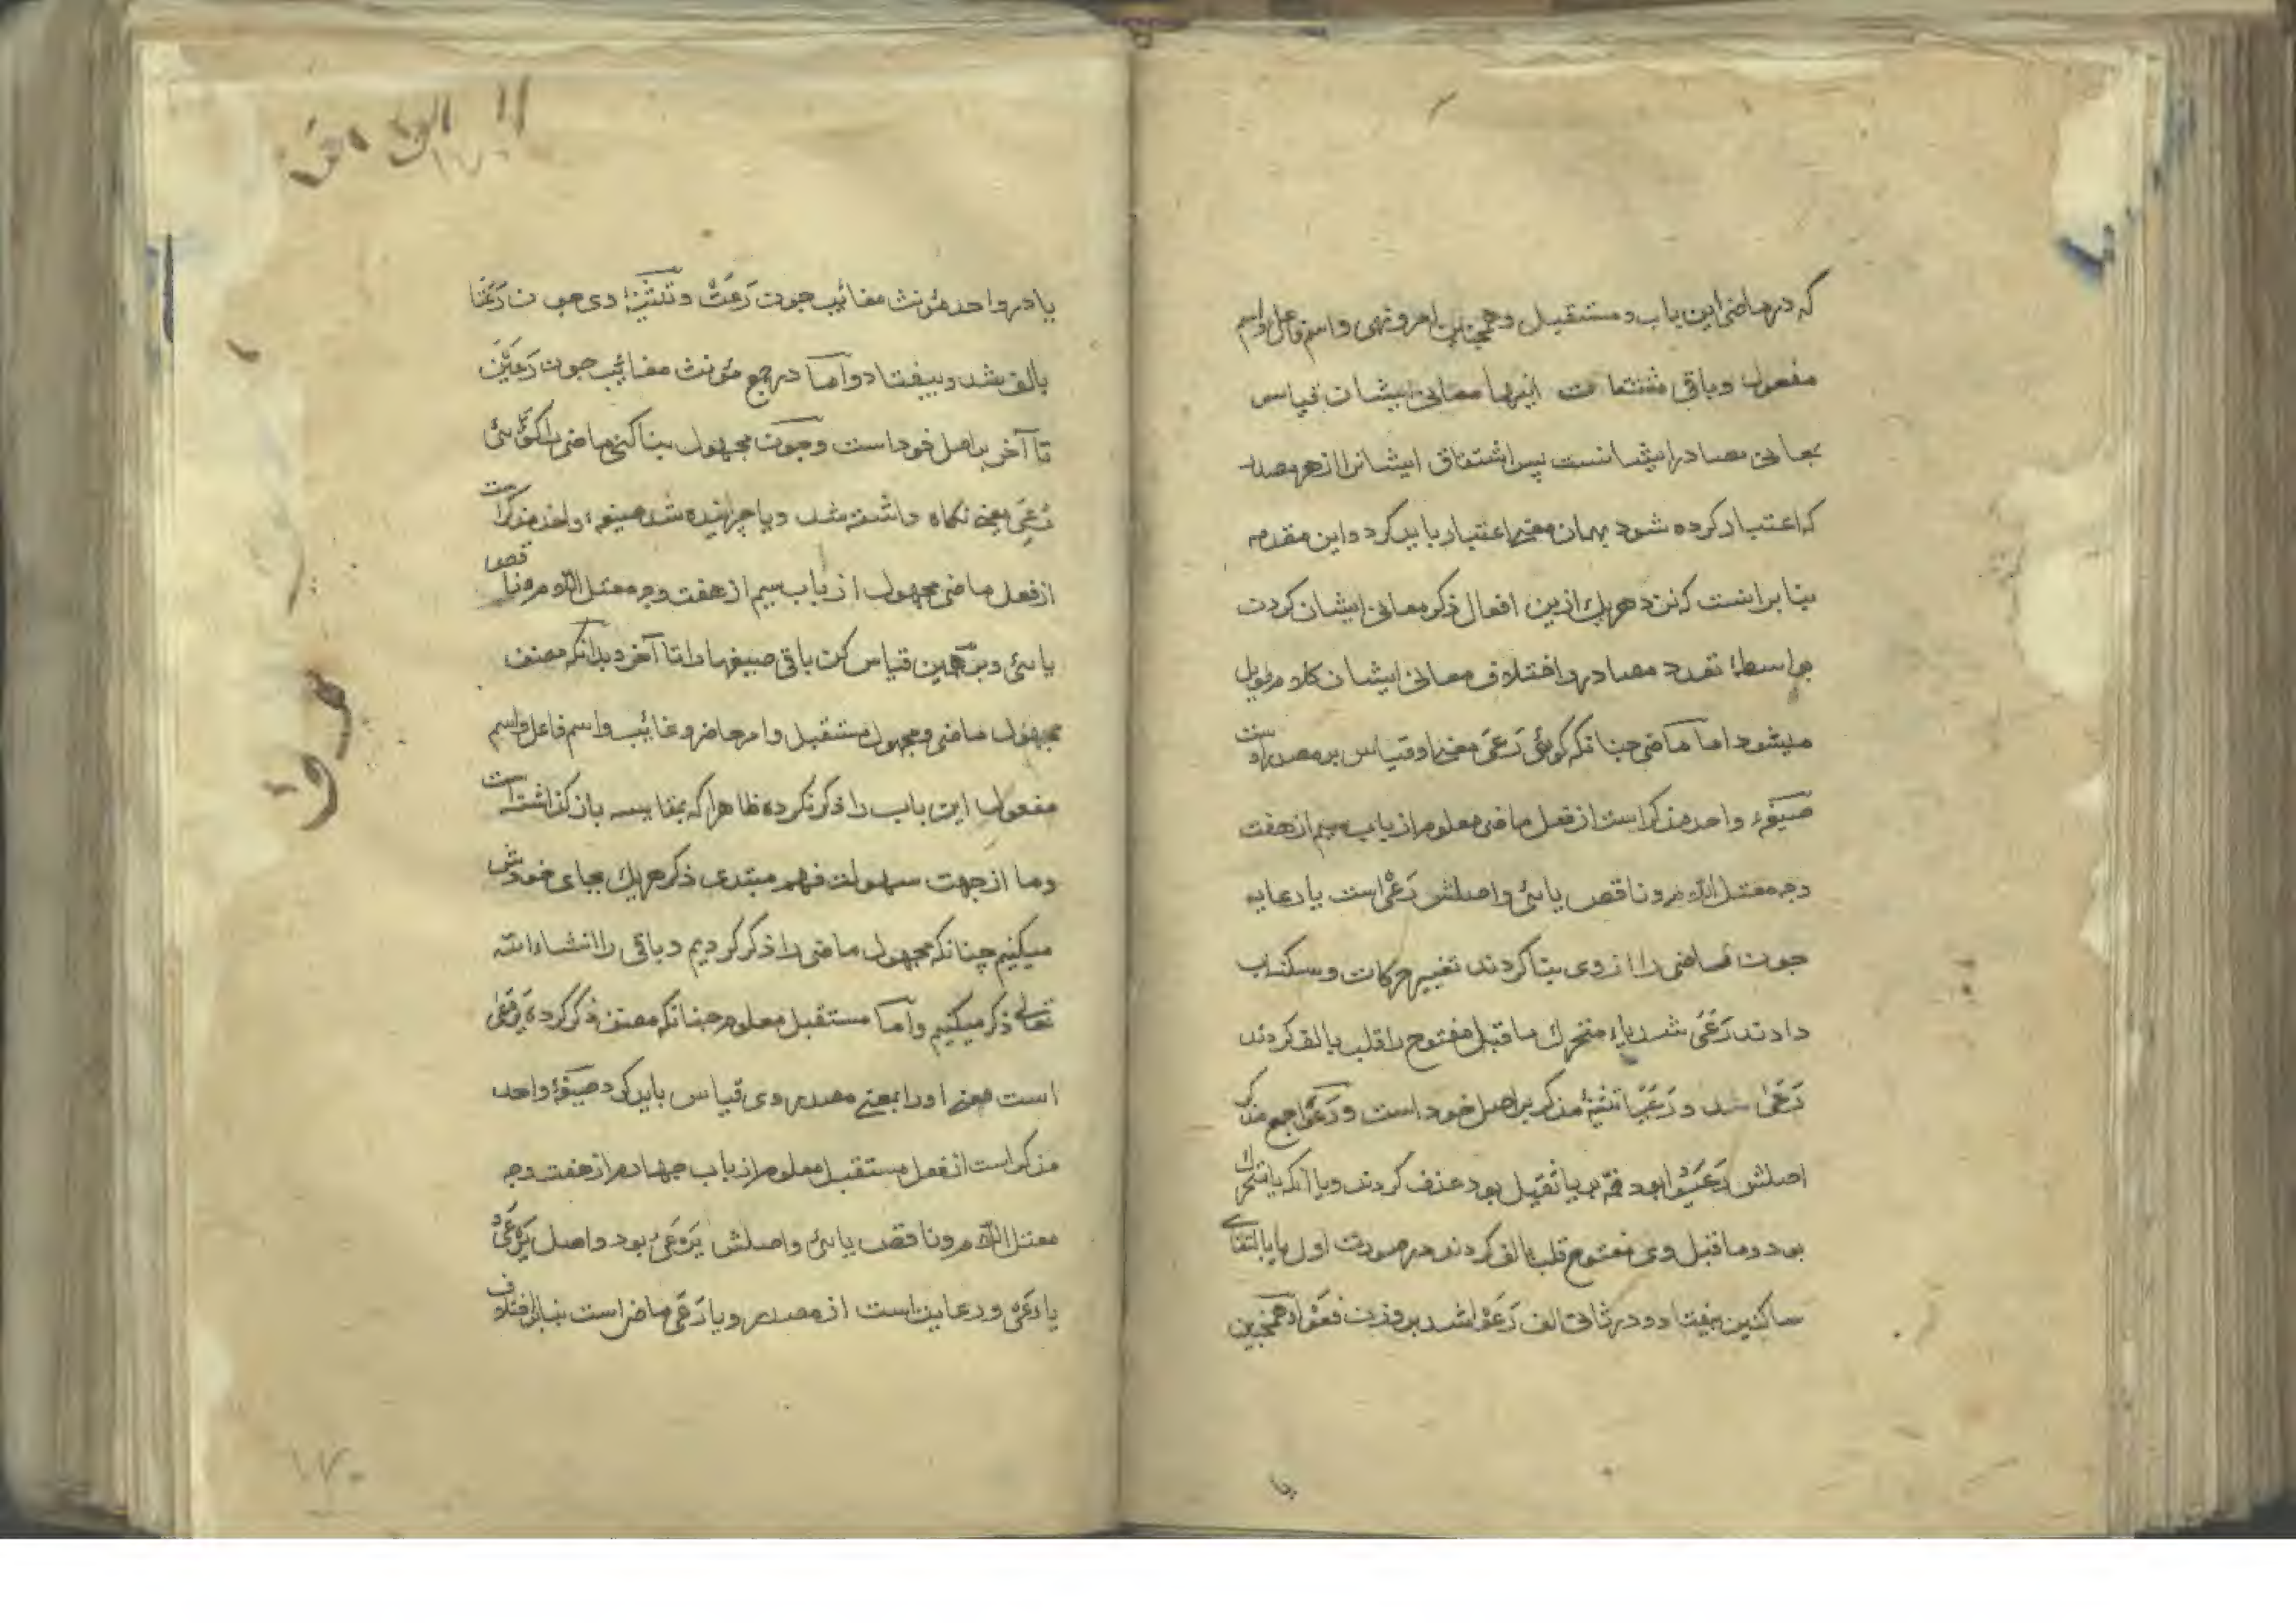 که در ماضی این باب و مستقبل و همچنین امر و نهی و اسم فاعل و اسم
مفعول و باقی مشتقات اینها معانی ایشان قیاس
بمعانی مصادر ایشانست پس اشتقاق ایشانرا از هر مصدر
که اعتبار کرده شود بهمان معنی اعتبار باید کرد و این مقدمه
بنا بر انست که نزد هر یک ازین افعال ذکر معانی ایشان کردن
بواسطهٔ تعدد مصادر و اختلاف معانی ایشان کلام طویل
میشود اما ماضی چنانکه کوئی رَعَیَ معنی او قیاس بر مصدر اوست
صیغهٔ واحد مذکر است از فعل ماضی معلوم از باب سیم از هفت
وجه معتل اللام و ناقص یائی و اصلش رَعْیٌ است یا رعایه
جون ماضی را از وی بنا کردند تغییر حرکات و سکنات
دادند رَعَیَ شد یاء متحرک ما قبل مفتوح را قلب بالف کردند
رَعَیٰ شد و رَعَیَا تثنیهٔ مذکر بر اصل خود است و رَعَوْا جمع مذکر
اصلش رَعَیُوا بود ضمّه بر یا ثقیل بود حذف کردند و یا آنکه یا متحرک
بود و ما قبل وی مفتوح قلب بالف کردند در صورت اول یا بالتقای
ساکنین بیفتاد و در ثانی الف رَعَوْا شد بر وزن فَعَوْا و همچنین
یا
یا در واحد مؤنث مغائب جون رَعَتْ و تثنیهٔ وی جون رَعَتَا
بالف شد و بیفتاد و امّا در جمع مؤنث مغائب جون رَعَیْنَ
تا آخر بر اصل خود است و جون مجهول بنا کنی ماضی را کوئی
رُعِیَ یعنی نکاه داشته شد و یا چرانیده شد صیغهٔ واحد مذکر است
از فعل ماضی مجهول از باب سیم از هفت وجه معتل اللام و ناقص
یائی و برهمین قیاس کن باقی صیغها را تا آخر و بدانکه مصنف
مجهول ماضی و مجهول مستقبل و امر حاضر و غائب و اسم فاعل و اسم
مفعول این باب را ذکر نکرده ظاهرا که بمقایسه باز کذاشته است
و ما از جهت سهولت فهم مبتدی ذکر هر یک بجای خودش
میکنیم چنانکه مجهول ماضی را ذکر کردیم و باقی را انشاء الله
تعالی ذکر میکنیم و امّا مستقبل معلوم چنانکه مصنف ذکر کرده یَرْعَیٰ
است معنی او را بمعنی مصدر وی قیاس باید کرد صیغهٔ واحد
مذکر است از فعل مستقبل معلوم از باب چهارم از هفت وجه
معتل اللام و ناقص یائی و اصلش یَرْعَیُ بود و اصل یَرْعَیُ
یا رَعْیٌ و رعایت است از مصدر و یا رَعَیَ ماضی است بنا بر اختلاف